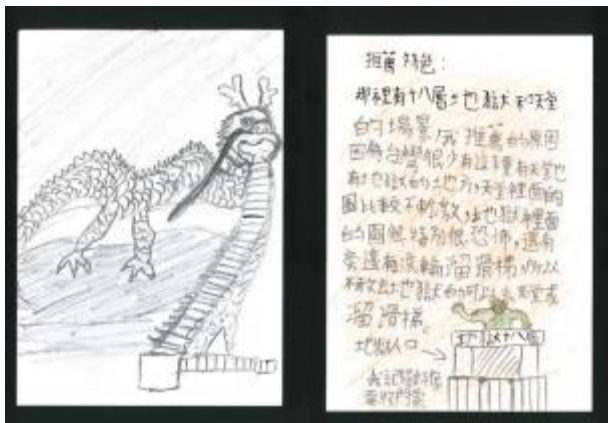 推薦特色：
那裡有十八層地獄和天堂
的場景，我推薦的原因
因為台灣很少有這種有天堂也
有地獄的地方，天堂裡面的
圖比較不刺激，地獄裡面
的圖都特別很恐怖，還有
旁邊有滾輪溜滑梯，所以
不敢去地獄的可以去天堂或
溜滑梯。
地獄入口
地獄十八層